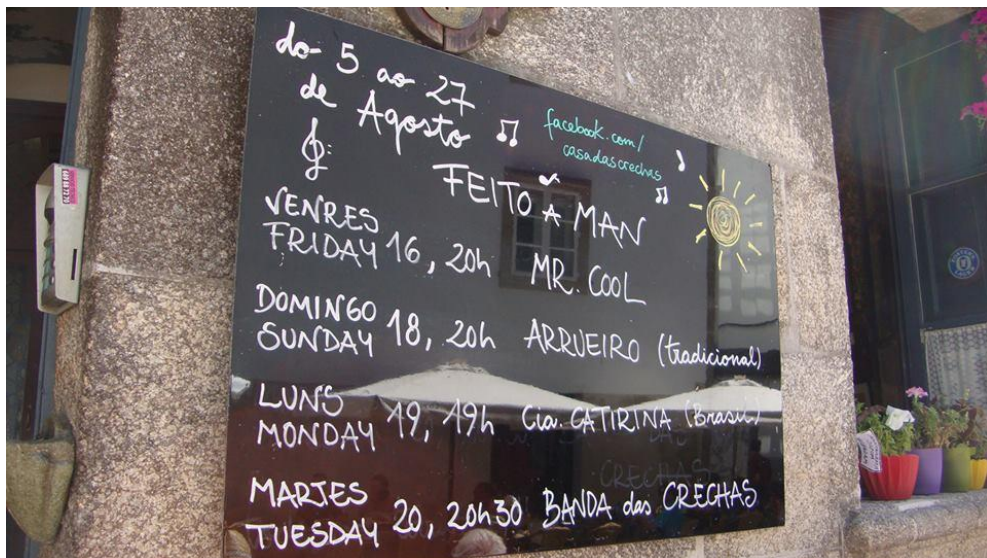 do 5 ao 27
de Agosto
facebook.com/
casadascrechas
FEITO A MAN
VENRES
FRIDAY 16, 20h MR. COOL
DOMINGO
SUNDAY 18, 20h ARRUEIRO (tradicional)
LUNS
MONDAY 19, 19h Cia. CATIRINA (Brasil)
DAS
CRECHAS
MARTES
TUESDAY 20, 20h30 BANDA das CRECHAS